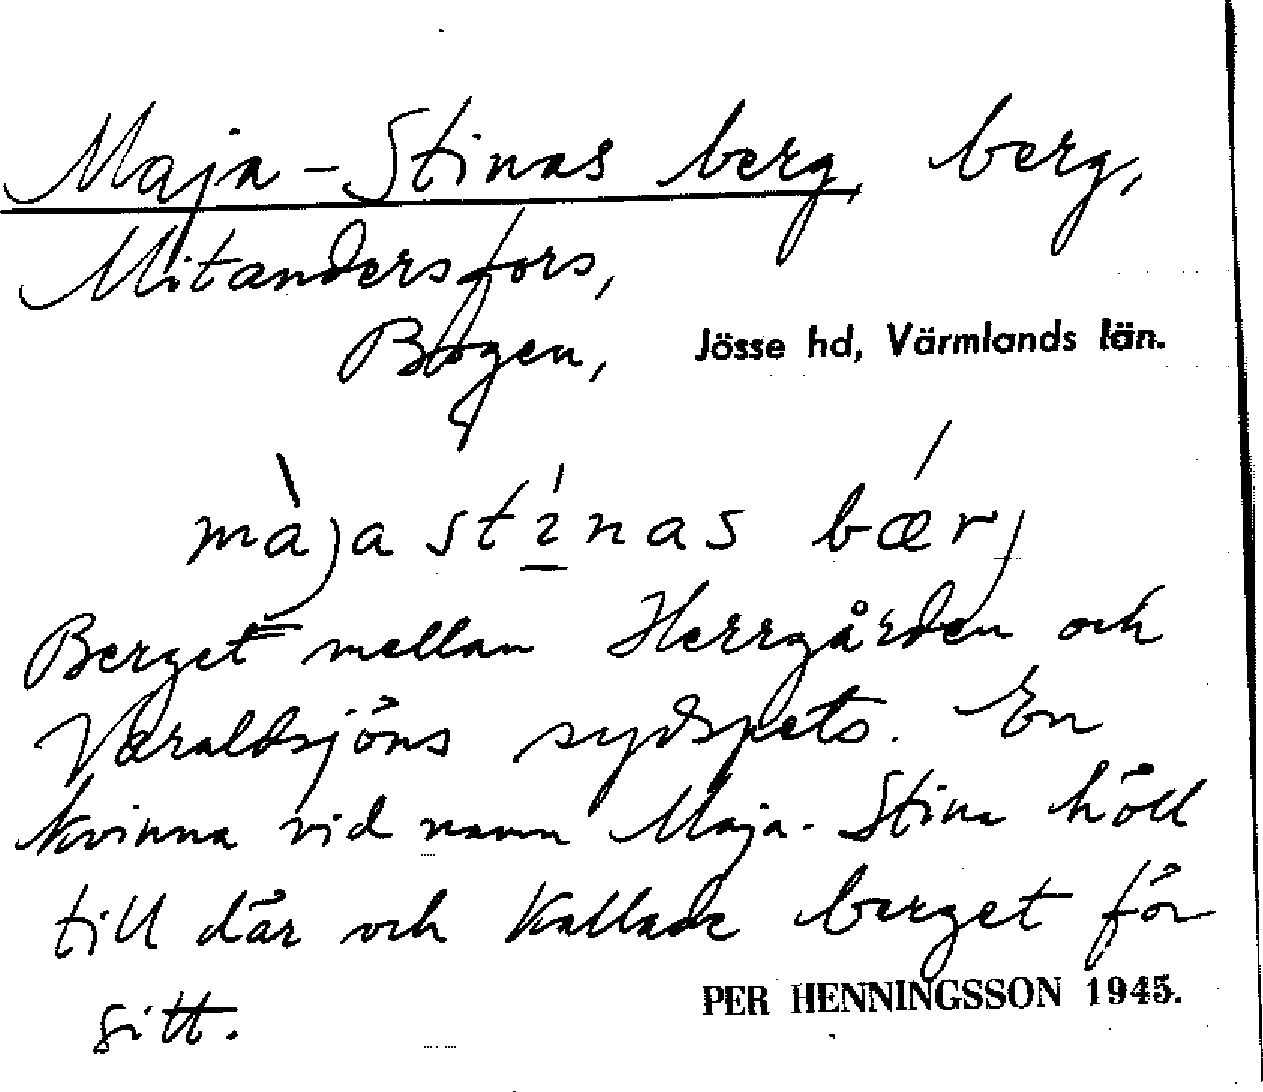 Maja-Stinas berg, berg,
Mitandersfors,
Bogen, Jösse hd, Värmlands län.
màja stı́nas bæŕj
Berget mellan Herrgården och
Varaldsjöns sydspets. En
kvinna vid namn Maja-Stina höll
till där och kallade berget för
sitt.
PER HENNINGSSON 1945.